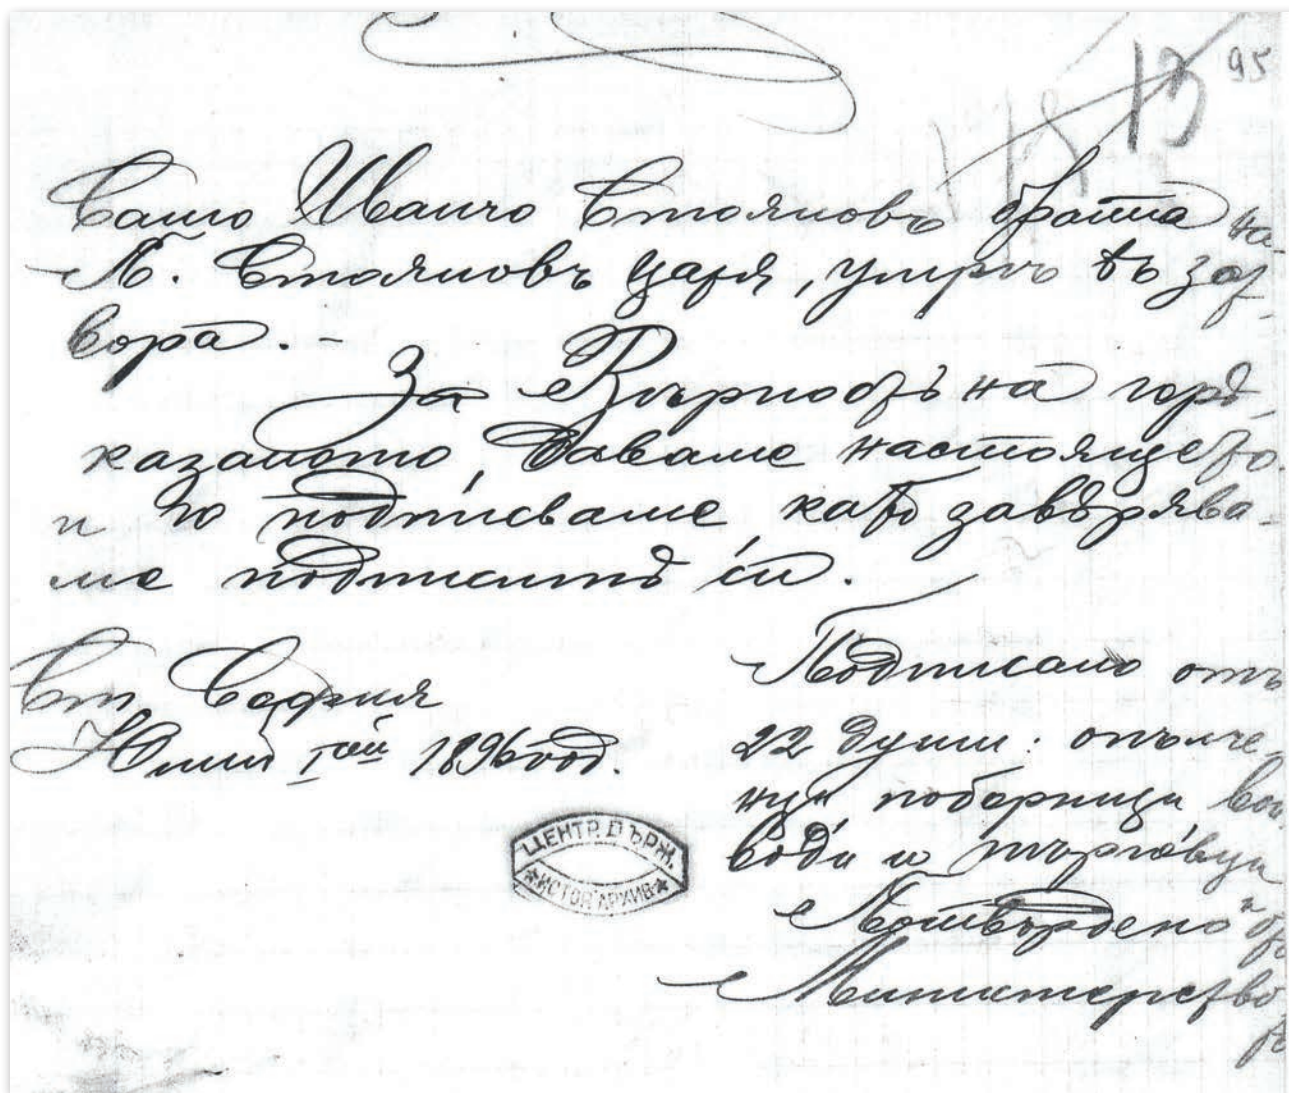 95
18 13
Само Иванчо Стояновъ брата на
П. Стояновъ Царя, умрѣ въ зат-
вора. -
За Вѣрностьъ на горѣ
казаното, даваме настоящето
и го подписваме като завѣрява-
ме подписитѣ си.
Ст. София
Юлий 1ый 1896 год.
Подписано отъ
22 души: опълче-
нци поборници вой-
води и търговци
Потвърдено и отъ
Министерство
то
ЦЕНТР. ДЪРЖ.
ИСТОР. АРХИВ